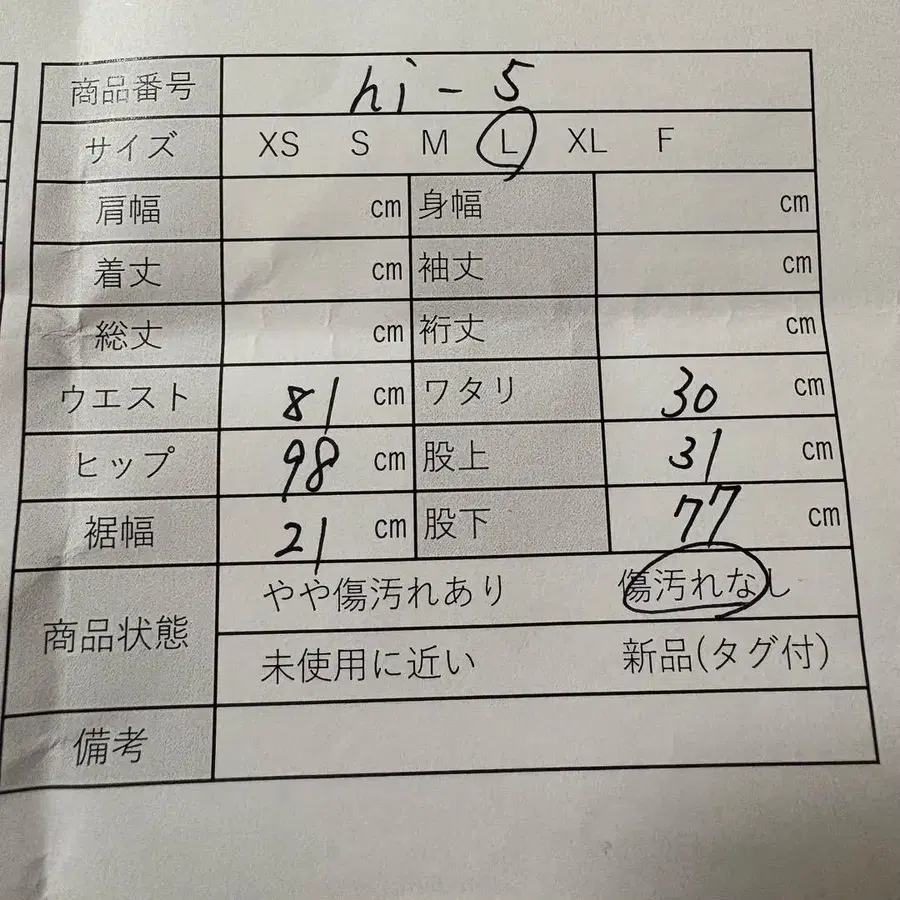 商品番号 hi-5
サイズ XS S M L XL F
肩幅 cm 身幅 cm
着丈 cm 袖丈 cm
総丈 cm 裄丈 cm
ウエスト 81 cm ワタリ 30 cm
ヒップ 98 cm 股上 31 cm
裾幅 21 cm 股下 77 cm
商品状態
やや傷汚れあり 傷汚れなし
未使用に近い 新品(タグ付)
備考